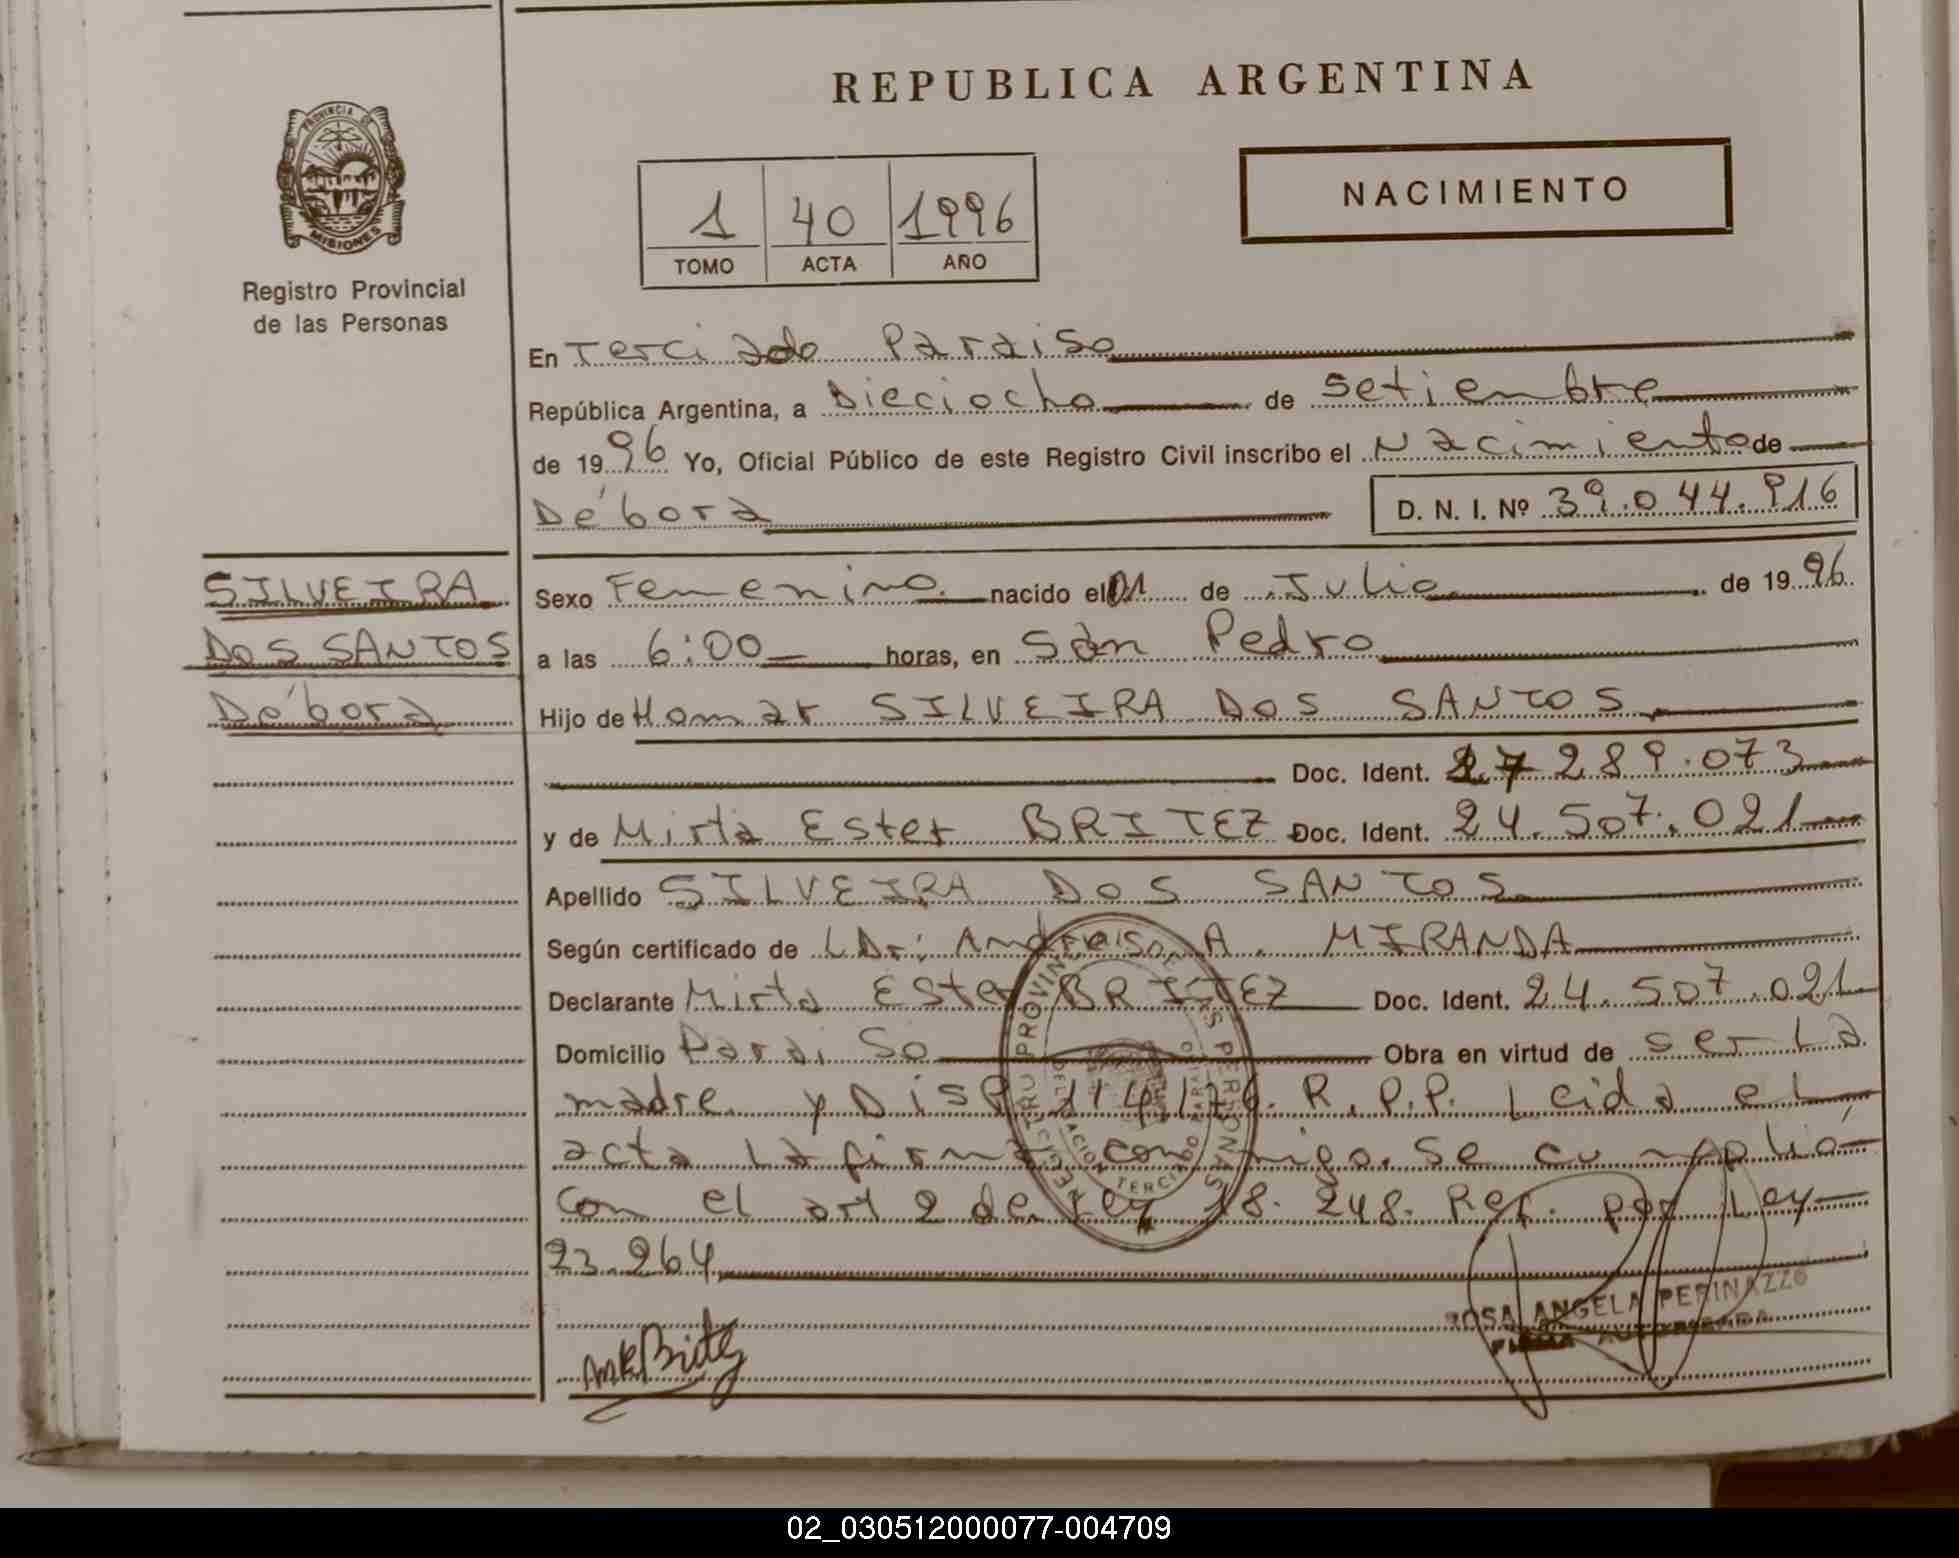 REPUBLICA ARGENTINA
PROVINCIA DE
MISIONES
Registro Provincial
de las Personas
NACIMIENTO
1 40 1996
TOMO ACTA AÑO
En Terciado Paraiso
República Argentina, a Dieciocho de Setiembre
de 1996 Yo, Oficial Público de este Registro Civil inscribo el Nacimiento de
Débora D. N. I. Nº 39.044.916
SILVEIRA
DOS SANTOS
Débora
Sexo Femenino nacido el 01 de Julio de 1996
a las 6:00 horas, en San Pedro
Hijo de Homar SILVEIRA DOS SANTOS
Doc. Ident. 27 289.073
y de Mirta Ester BRITEZ Doc. Ident. 24.507.021
Apellido SILVEIRA DOS SANTOS
Según certificado de LDr: Andres A. MIRANDA
Declarante Mirta Ester BRITEZ Doc. Ident. 24.507.021
Domicilio Paraiso Obra en virtud de ser La
madre y Disp 114/76. R.P.P. Leida el
acta La firma conmigo. Se cumplió
con el art 2 de Ley 18.248. Ref. por Ley
23.264
ROSA ANGELA PERINAZZO
FIRMA AUTORIZADA
MEBritez
02_030512000077-004709